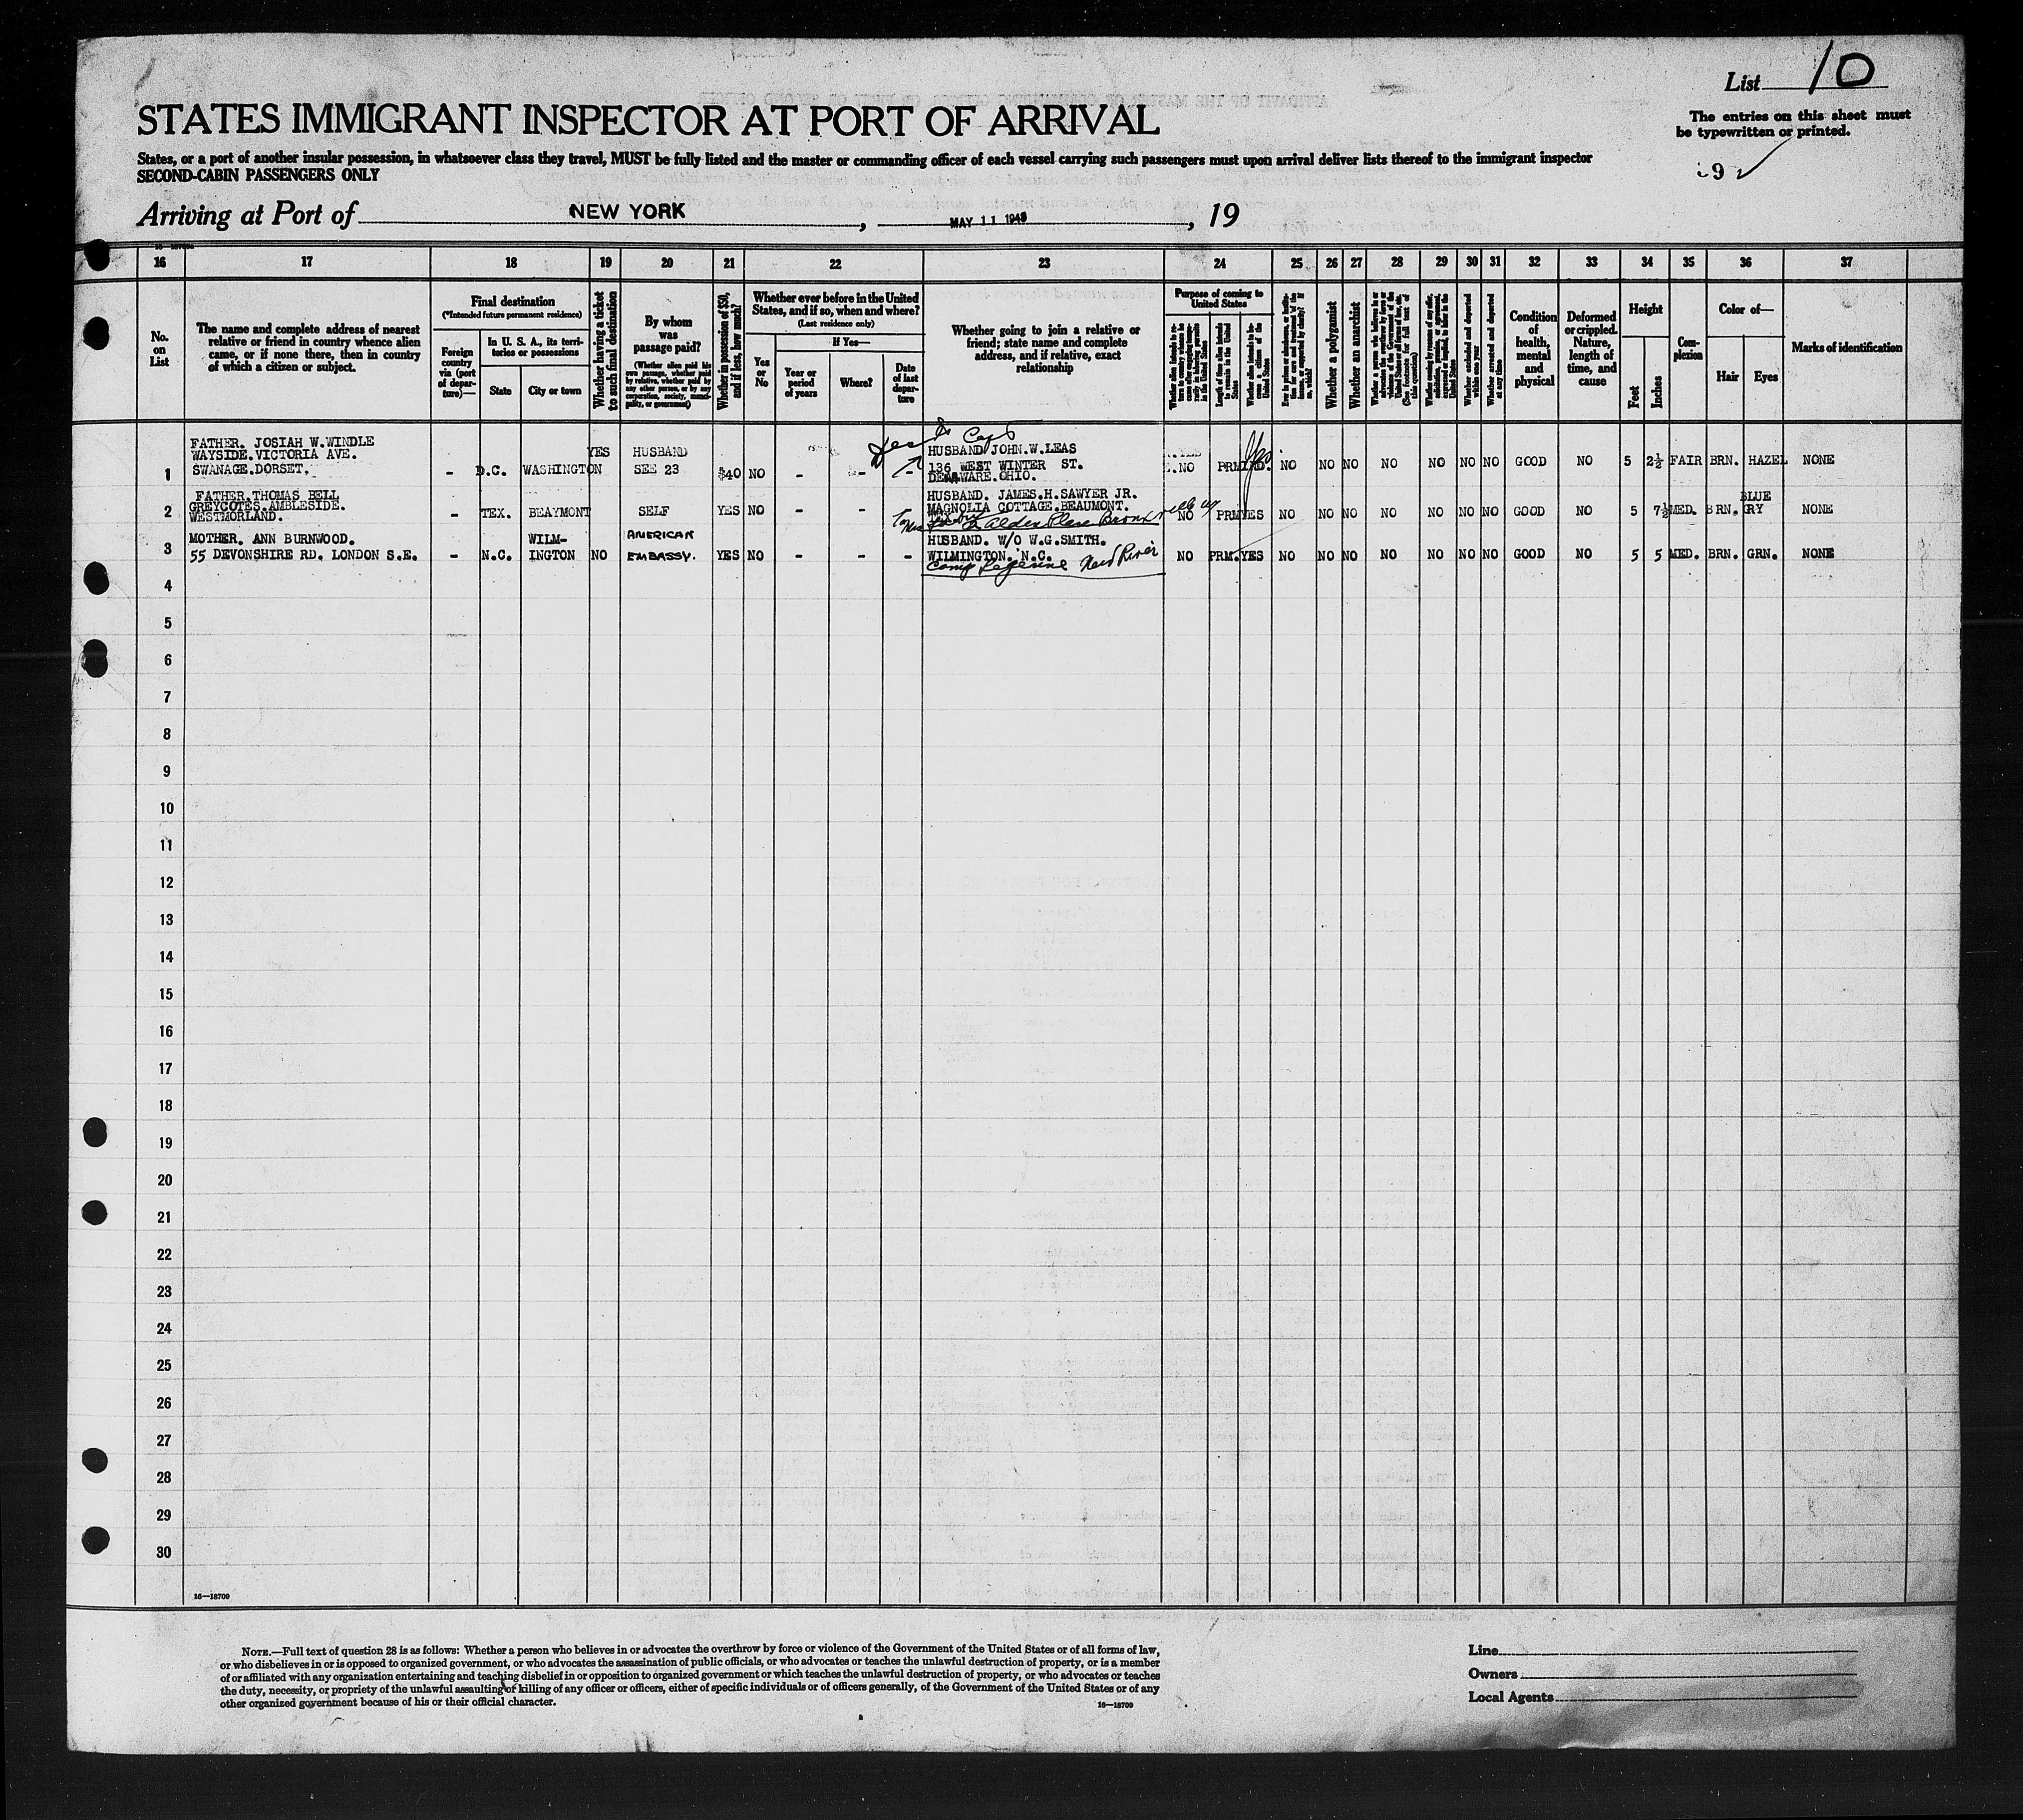 List 10
STATES IMMIGRANT INSPECTOR AT PORT OF ARRIVAL
The entries on this sheet must
be typewritten or printed.
States, or a port of another insular possession, in whatsoever class they travel, MUST be fully listed and the master or commanding officer of each vessel carrying such passengers must upon arrival deliver lists thereof to the immigrant inspector
SECOND-CABIN PASSENGERS ONLY
9
Arriving at Port of NEW YORK, MAY 11 1943, 19
16 17 18 19 20 21 22 23 24 25 26 27 28 29 30 31 32 33 34 35 36 37
No. on List
The name and complete address of nearest
relative or friend in country whence alien
came, or if none there, then in country
of which a citizen or subject.
Final destination
(*Intended future permanent residence)
Foreign country via (port of departure)—
In U. S. A., its territories or possessions
State
City or town
Whether having a ticket to such final destination
By whom was passage paid?
(Whether alien paid his own passage, whether paid by relative, whether paid by any other person, or by any corporation, society, municipality, or government)
Whether in possession of $50, and if less, how much?
Whether ever before in the United States, and if so, when and where?
(Last residence only)
Yes or No
If Yes—
Year or period of years
Where?
Date of last departure
Whether going to join a relative or
friend; state name and complete
address, and if relative, exact
relationship
Purpose of coming to United States
Whether a polygamist
Whether an anarchist
Condition of health, mental and physical
Deformed or crippled. Nature, length of time, and cause
Height
Feet
Inches
Complexion
Color of—
Hair
Eyes
Marks of identification
1 FATHER. JOSIAH W.WINDLE
WAYSIDE.VICTORIA AVE.
SWANAGE.DORSET. - D.C. WASHINGTON YES HUSBAND
SEE 23 $40 NO - - - HUSBAND/JOHN.W.LEAS
136 WEST WINTER ST.
DELAWARE.OHIO. NO PRM NO NO NO NO NO NO NO GOOD NO 5 2½ FAIR BRN. HAZEL NONE
2 FATHER.THOMAS BELL
GREYCOTES.AMBLESIDE.
WESTMORLAND. - TEX. BEAYMONT SELF YES NO - - HUSBAND. JAMES.H.SAWYER JR.
MAGNOLIA COTTAGE.BEAUMONT.
Alden Place Bronxville NY
NO PRM YES NO NO NO NO NO NO NO GOOD NO 5 7½ MED. BRN. BLUE
GRY NONE
3 MOTHER. ANN BURNWOOD.
55 DEVONSHIRE RD. LONDON S.E. - N.C. WILM-
INGTON NO AMERICAN
EMBASSY. YES NO - - - HUSBAND. W/O W.G.SMITH.
WILMINGTON. N.C. New River
Camp Lejeune
NO PRM. YES NO NO NO NO NO NO NO GOOD NO 5 5 MED. BRN. GRN. NONE
4
5
6
7
8
9
10
11
12
13
14
15
16
17
18
19
20
21
22
23
24
25
26
27
28
29
30
16—18709
NOTE.—Full text of question 28 is as follows: Whether a person who believes in or advocates the overthrow by force or violence of the Government of the United States or of all forms of law,
or who disbelieves in or is opposed to organized government, or who advocates the assassination of public officials, or who advocates or teaches the unlawful destruction of property, or is a member
of or affiliated with any organization entertaining and teaching disbelief in or opposition to organized government or which teaches the unlawful destruction of property, or who advocates or teaches
the duty, necessity, or propriety of the unlawful assaulting or killing of any officer or officers, either of specific individuals or of officers generally, of the Government of the United States or of any
other organized government because of his or their official character.
16—18709
Line
Owners
Local Agents